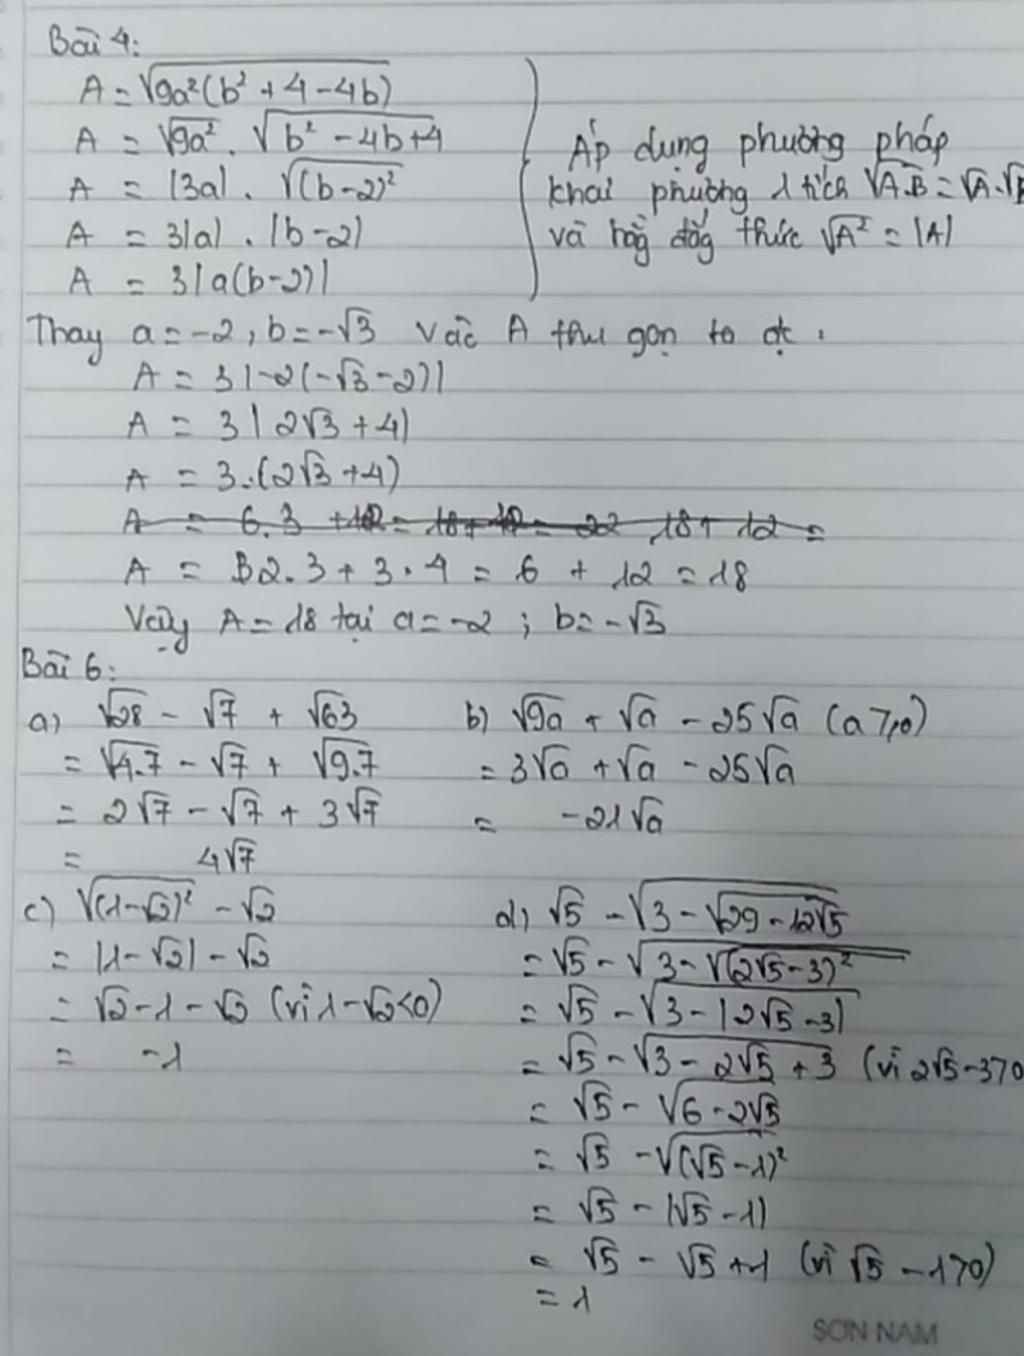 Bài 4:
A = √9a²(b² + 4 - 4b)
A = √9a² . √b² - 4b + 4
A = |3a| . √(b-2)²
A = 3|a| . |b-2|
A = 3|a(b-2)|
Áp dụng phương pháp
khai phương 1 tích √A.B = √A.√B
và hằng đẳng thức √A² = |A|
Thay a = -2, b = -√3 vào A thu gọn ta đc :
A = 3|-2(-√3-2)|
A = 3|2√3+4|
A = 3.(2√3+4)
A = 6.3 +12 = 18+12 = 22 18+12 =
A = 2.3 + 3.4 = 6 + 12 = 18
Vậy A = 18 tại a = -2 ; b = -√3
Bài 6:
a) √28 - √7 + √63
= √4.7 - √7 + √9.7
= 2√7 - √7 + 3√7
= 4√7
b) √9a + √a - 25√a (a ≥ 0)
= 3√a + √a - 25√a
= -21√a
c) √(1-√2)² - √2
= |1-√2| - √2
= √2 - 1 - √2 (vì 1-√2<0)
= -1
d) √5 - √3 - √29 - 12√5
= √5 - √3 - √(2√5-3)²
= √5 - √3 - |2√5-3|
= √5 - √3 - 2√5 + 3 (vì 2√5-3>0
= √5 - √6 - 2√5
= √5 - √(√5-1)²
= √5 - |√5-1|
= √5 - √5 + 1 (vì √5 - 1>0)
= 1
SON NAM